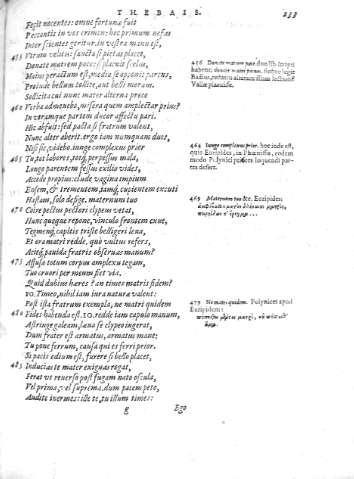 THEBAIS. 233
Fecit nocentes: omne fortuna fuit
Peccantis in vos crimen: hoc primum nefas
Inter scientes geritur. in vestra manu est,
455 Utrum velitis: sancta si pietas placet,
Donate matrem pace: si placuit scelus,
Maius peractum est, media se opponit parens,
Proinde bellum tollite, aut belli moram.
Sollicita cui nunc mater alterna prece
460 Verba admoveba, misera quem amplectar prius?
In utramque partem ducor affectu pari.
Hic abfuit: sed pacta si fratrum valent,
Nunc alter aberit. ergo iam numquam duos,
Nisi sic, videbo. iunge complexus prior
465 Tu, qui labores, totq́; perpessus mala,
Longo parentem fessus exilio vides,
Accede propius: clude vagina impium
Ensem, & trementem iamq́; cupientem excuti
Hastam, solo defige. maternum tuo
470 Coire pectus pectori clypeus vetat,
Hunc quoque repone, vinculo frontem exue,
Tegmenq́; capitis triste belligeri leva,
Et ora matri redde. quò vultus refers,
Acieq́; pavida fratris observas manum?
475 Affusa totum corpus amplexu tegam,
Tuo cruori per meum fiet via.
Quid dubius hæres? an times matris fidem?
PO. Timeo, nihil iam iura naturæ valent:
Post ista fratrum exempla, ne matri quidem
480 Fides habenda est. IO. redde iam capulo manum,
Astringe galeam, læva se clypeo ingerat,
Dum frater est armatus, armatus mane:
Tu pone ferrum, causa qui es ferri prior.
Si pacis odium est, furere si bello placet,
485 Inducias te mater exiguas rogat,
Ferat ut reverso post fugam nato oscula,
Vel prima, vel suprema, dum pacem peto,
Audite inermes: ille te, tu illum times:
g Ego
456 Donate matrem pace
464 Iunge complexus prior. hoc inde est,
quo Euripides, in Phœnissis, eodem
modo Polynici
469 Maternum tuo &c. Euripides:
479 Ne matri quidem. Polynices apud
Euripidem: